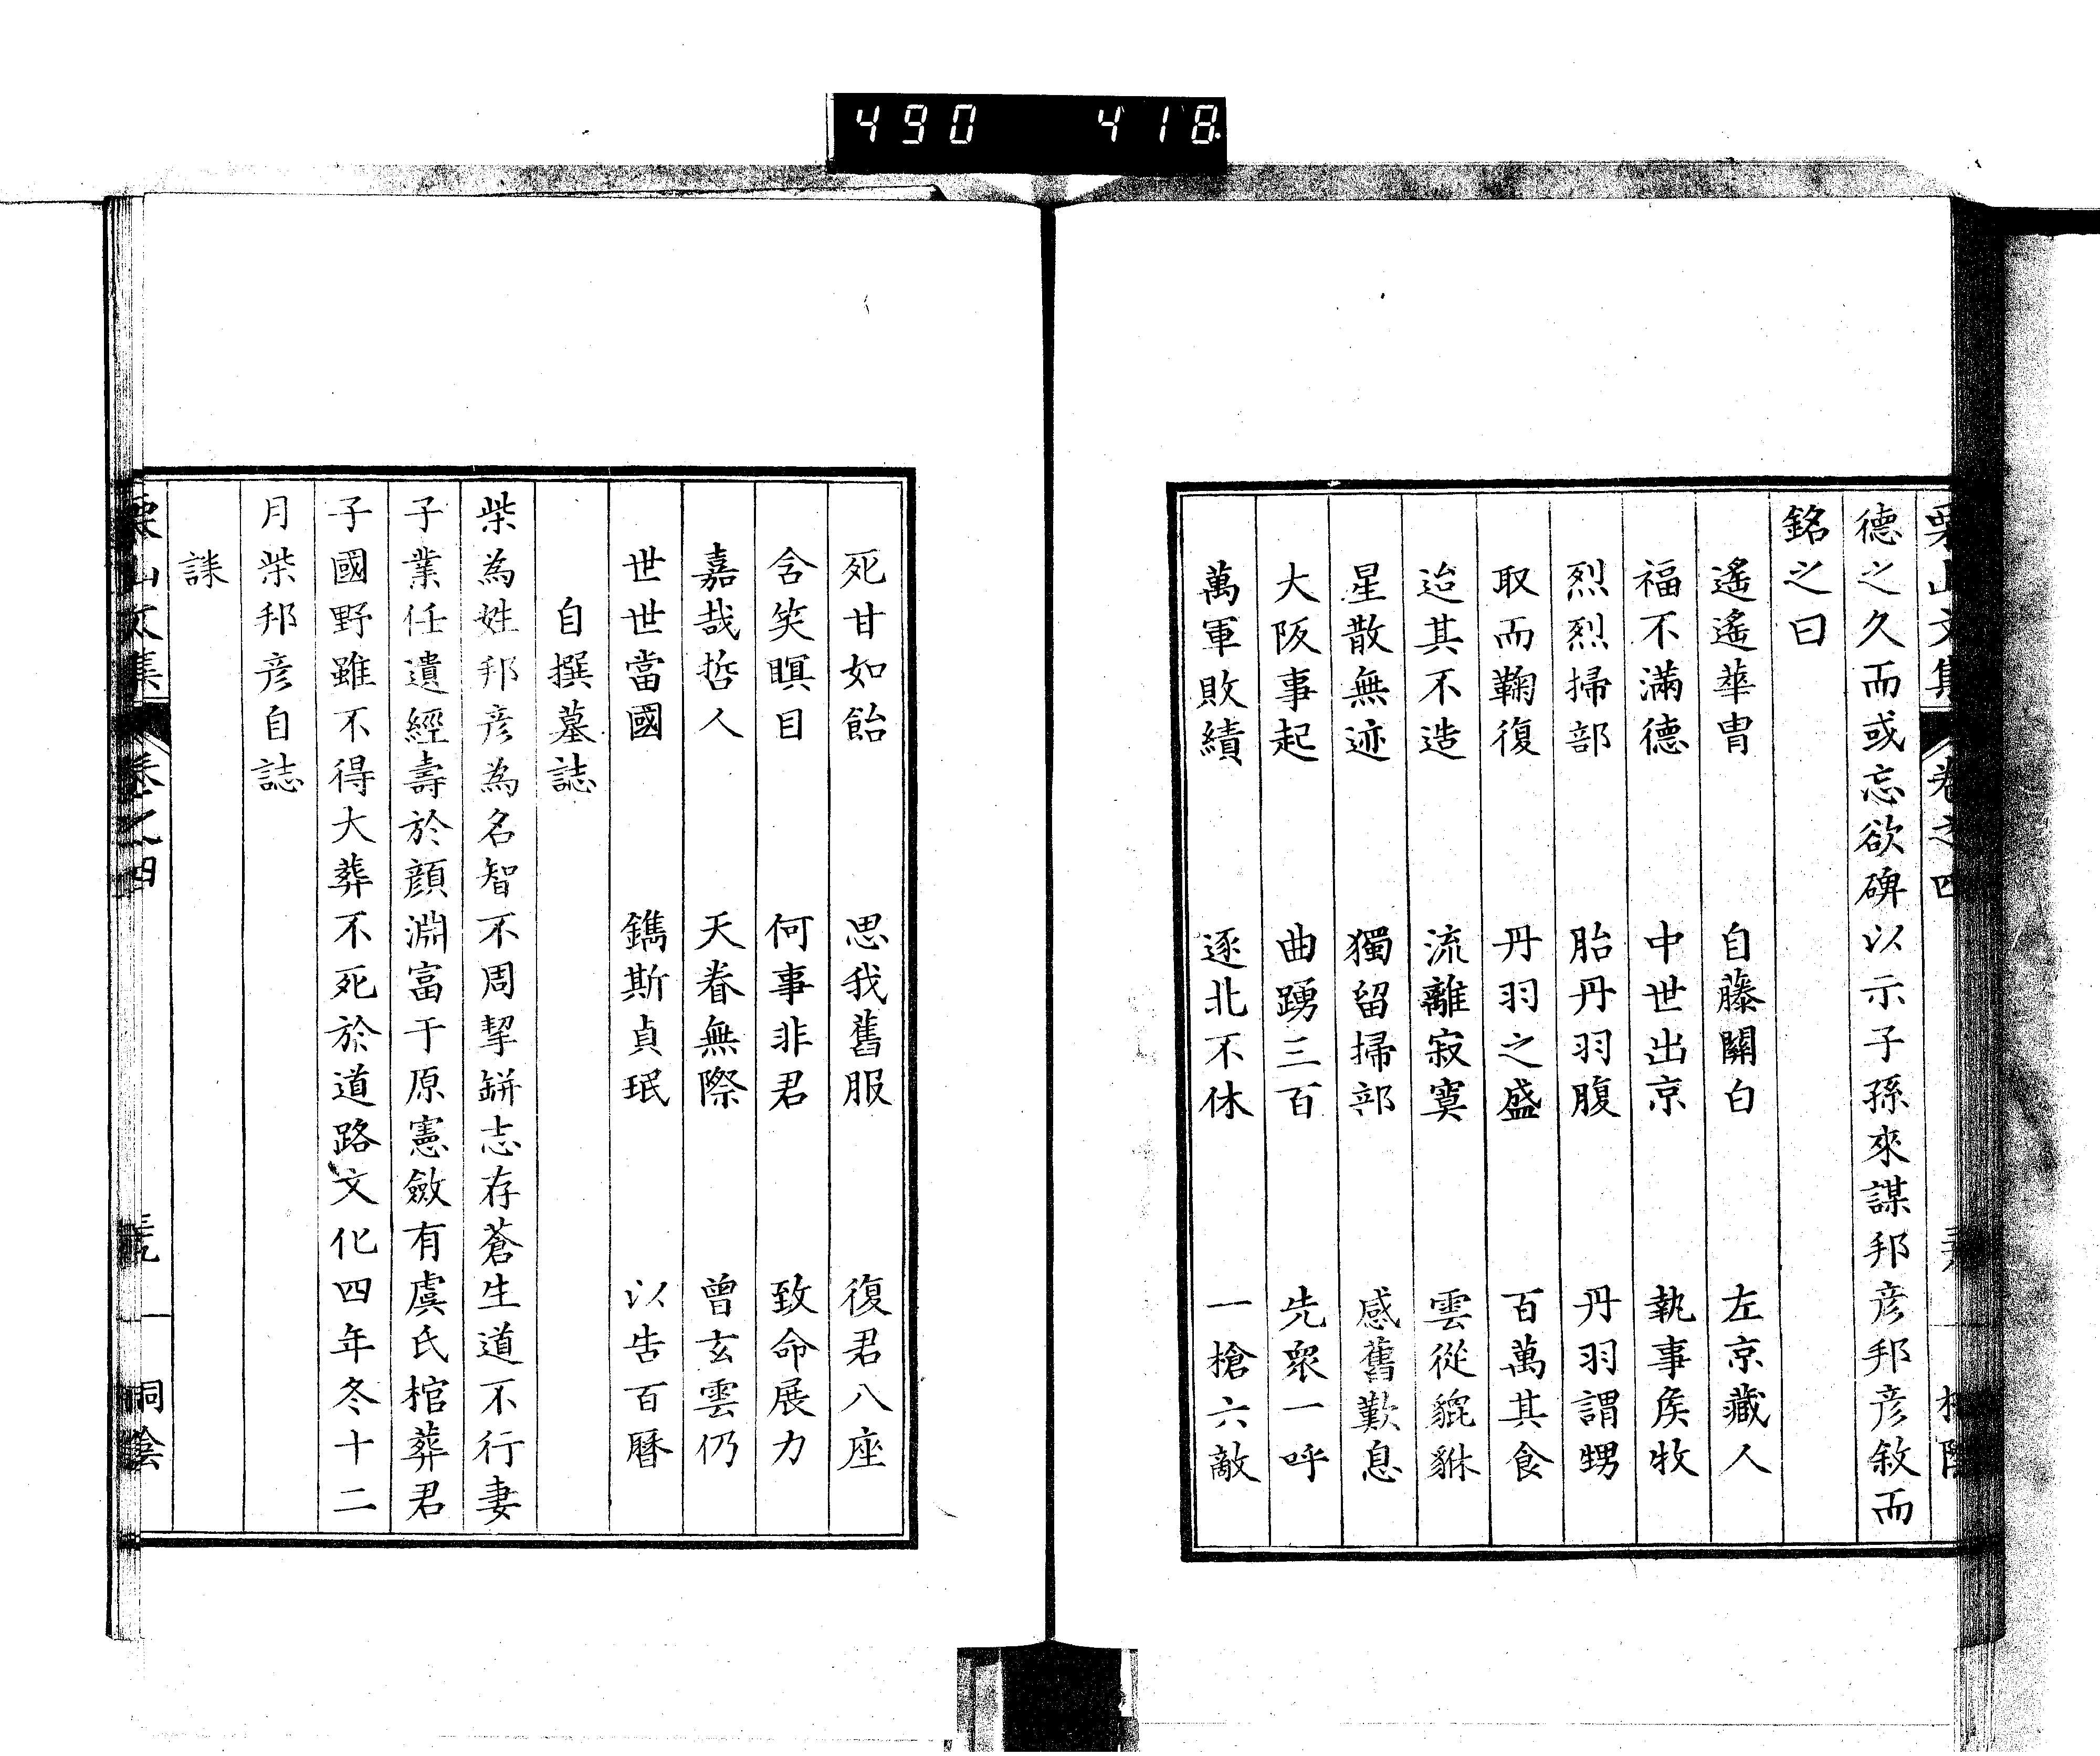 490 418
德之久而或忘欲碑以示子孫來謀邦彦邦彦敘而
銘之曰
遙遙華冑 自藤關白 左京藏人
福不滿德 中世出京 執事矦牧
烈烈掃部 胎丹羽腹 丹羽謂甥
取而鞠復 丹羽之盛 百萬其食
迨其不造 流離寂寞 雲從貔貅
星散無迹 獨留掃部 感舊歎息
大阪事起 曲踴三百 先衆一呼
萬軍敗績 逐北不休 一槍六敵
死甘如飴 思我舊服 復君八座
含笑瞑目 何事非君 致命展力
嘉哉哲人 天眷無際 曾玄雲仍
世世當國 鐫斯貞珉 以告百曆
自撰墓誌
柴為姓邦彦為名智不周挈缾志存蒼生道不行妻
子業任遺經壽於顔淵富于原憲斂有虞氏棺葬君
子國野雖不得大葬不死於道路文化四年冬十二
月柴邦彦自誌
誄
栗山文集 卷之四